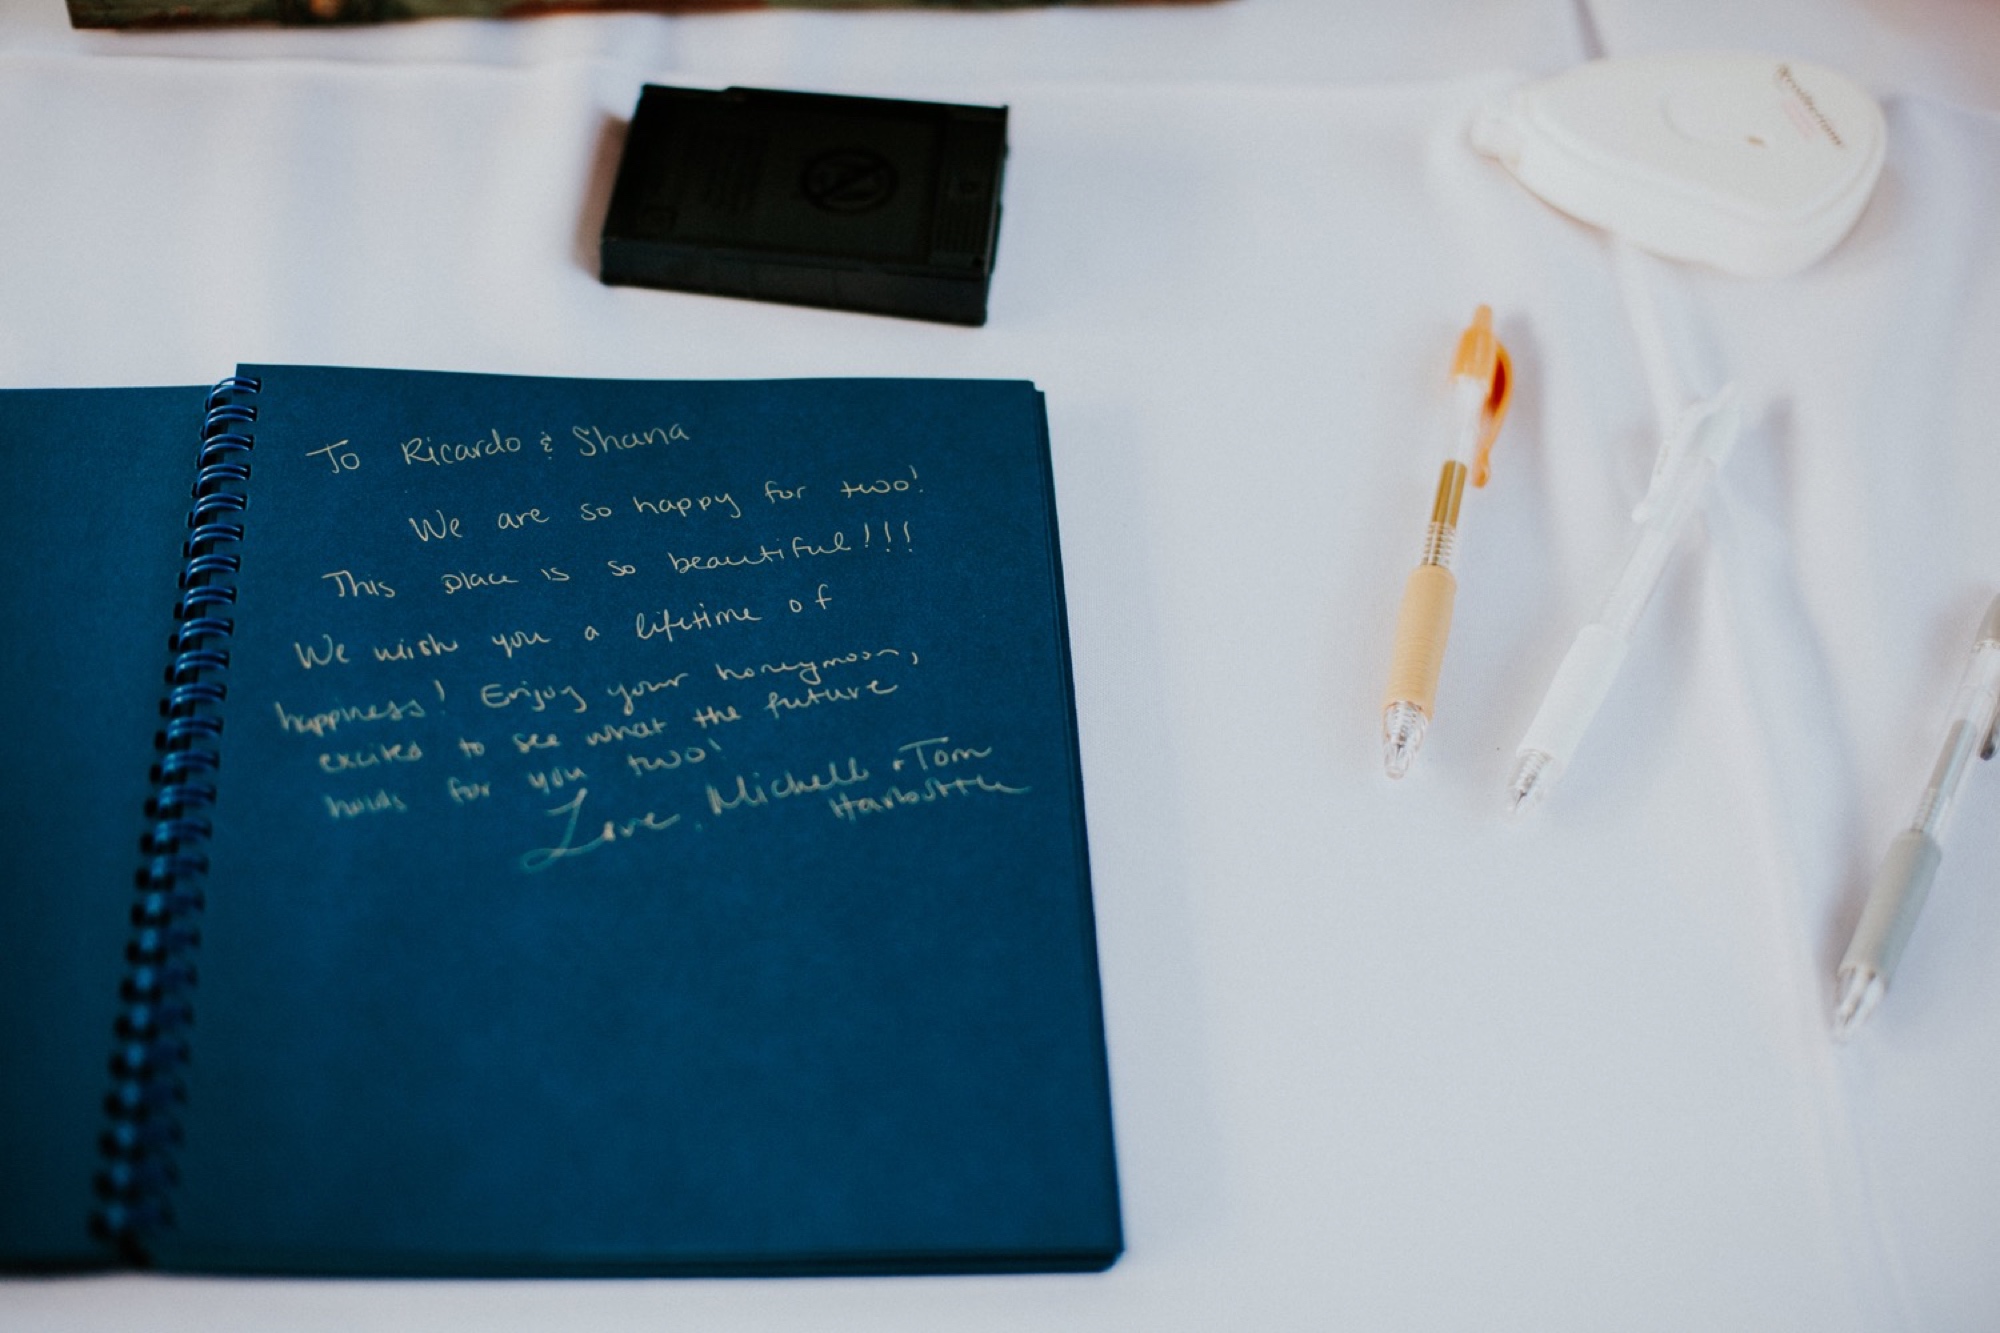 To Ricardo & Shana
We are so happy for two!
This place is so beautiful!!!
We wish you a lifetime of
happiness! Enjoy your honeymoon,
excited to see what the future
holds for you two!
Love, Michelle + Tom